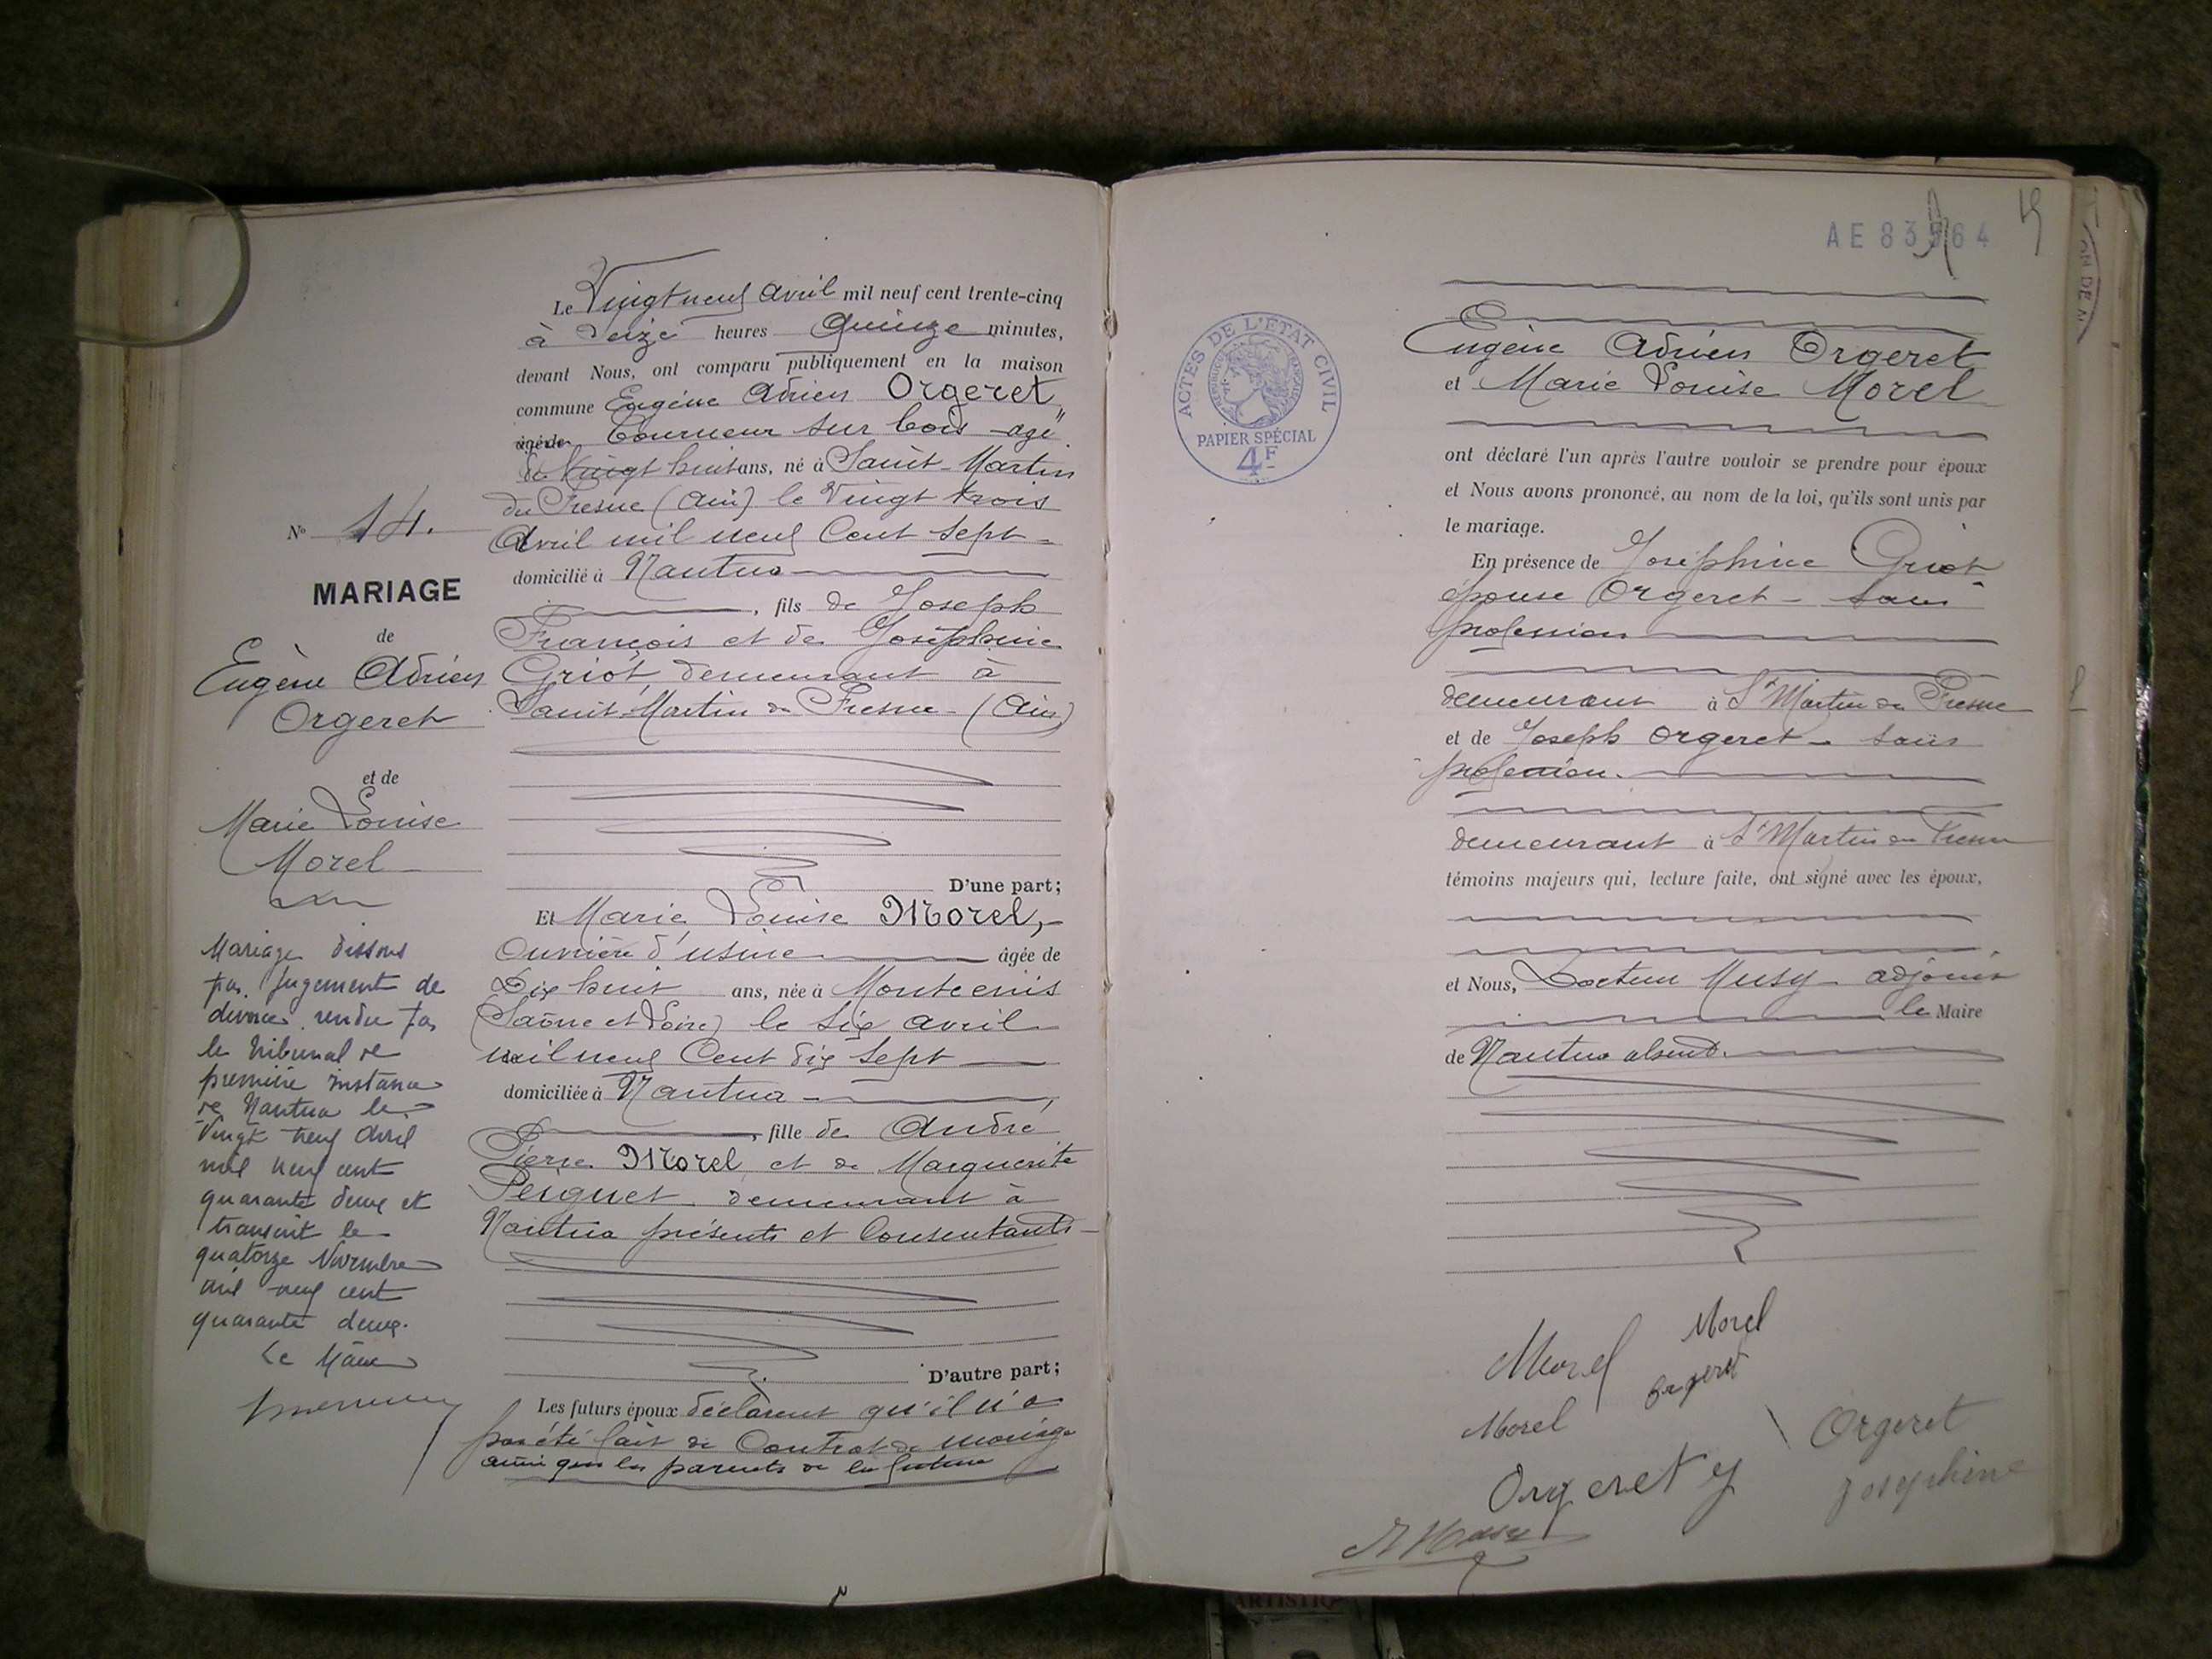 Le Vingt neuf avril mil neuf cent trente-cinq
à Seize heures Quinze minutes,
devant Nous, ont comparu publiquement en la maison
commune Eugène Adrien Orgeret,
Tourneur sur bois agé
de Vingt huit ans, né à Saint-Martin
du Fresne (Ain) le Vingt trois
Avril mil neuf Cent Sept
domicilié à Nantua
, fils de Joseph
François et de Joséphine
Griot, demeurant à
Saint-Martin du Fresne (Ain)
D'une part;
Et Marie Louise Morel,
Ouvrière d'usine âgée de
Dix huit ans, née à Montcenis
(Saône et Loire) le Six avril
mil neuf Cent dix Sept
domiciliée à Nantua
, fille de André
Pierre Morel et de Marguerite
demeurant à
Nantua présents et Consentants
D'autre part;
Les futurs époux déclarent qu'il n'a
pas été fait de Contrat de mariage
ainsi que les parents de la future
No 14.
MARIAGE
de
Eugène Adrien
Orgeret
et de
Marie Louise
Morel
Mariage dissous
par Jugement de
divorce rendu par
le tribunal de
première instance
de Nantua le
Vingt neuf Avril
mil neuf cent
quarante deux et
transcrit le
quatorze Novembre
mil neuf cent
quarante deux.
Le Maire
AE 83 64
ACTES DE L'ETAT CIVIL
PAPIER SPÉCIAL
4F
Eugène Adrien Orgeret
et Marie Louise Morel
ont déclaré l'un après l'autre vouloir se prendre pour époux
et Nous avons prononcé, au nom de la loi, qu'ils sont unis par
le mariage.
En présence de Joséphine Griot
épouse Orgeret - sans
profession
demeurant à St Martin du Fresne
et de Joseph Orgeret - sans
profession.
demeurant à St Martin du Fresne
témoins majeurs qui, lecture faite, ont signé avec les époux,
et Nous, Docteur Musy adjoint
le Maire
de Nantua absent.
Morel Morel
Orgeret
Morel
Orgeret
Orgeret J
Josephine
Musy
ARTISTIQ